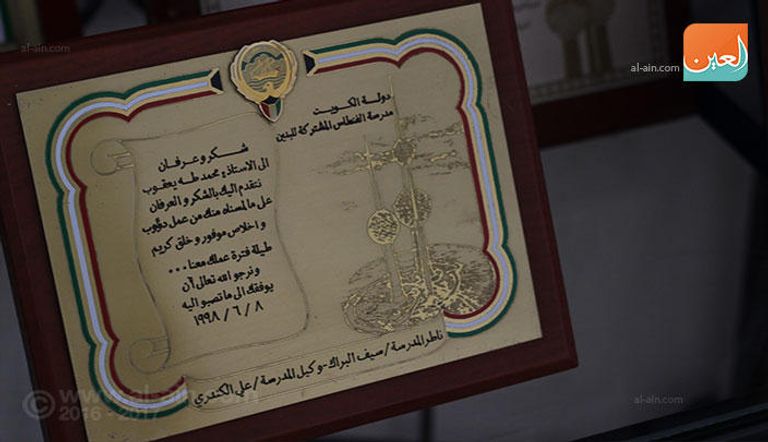 دولة الكويت
مدرسة الفنطاس المشتركة للبنين
شكر وعرفان
الى الاستاذ، محمد طه يعقوب
نتقدم اليك بالشكر و العرفان
على ما لمسناه منك من عمل دؤوب
و اخلاص موفور و خلق كريم
طيلة فترة عملك معنا ...
و نرجو الله تعالى أن
يوفقك الى ما تصبو اليه
١٩٩٨ / ٦ / ٨
ناظر المدرسة / سيف البراك - وكيل المدرسة / علي الكندري
العين
al-ain.com
al-ain.com
al-ain.com
al-ain.com
© www.al-ain.com
2016 - 2017